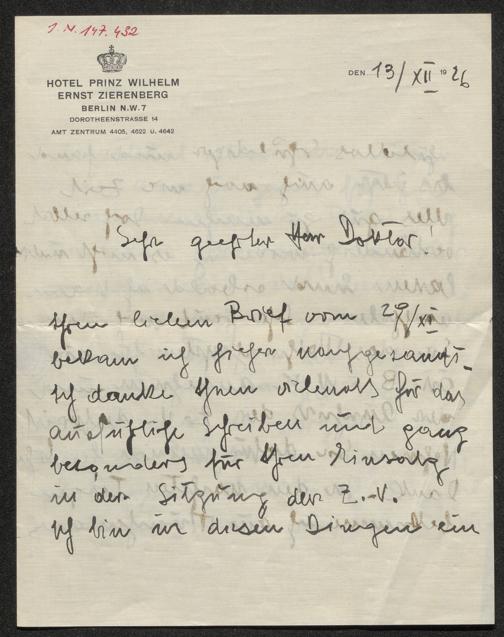 I. N. 147.432
HOTEL PRINZ WILHELM
ERNST ZIERENBERG
BERLIN N.W.7
DOROTHEENSTRASSE 14
AMT ZENTRUM 4405, 4622 U. 4642
DEN 13/XII 1926
Sehr geehrter Herr Doktor!
Ihren lieben Brief vom 29/XI
bekam ich hieher nachgesandt.
Ich danke Ihnen vielmals für das
ausführliche Schreiben und ganz
besonders für Ihren Einsatz
in der Sitzung der Z.-V.
Ich bin in diesen Dingen ein